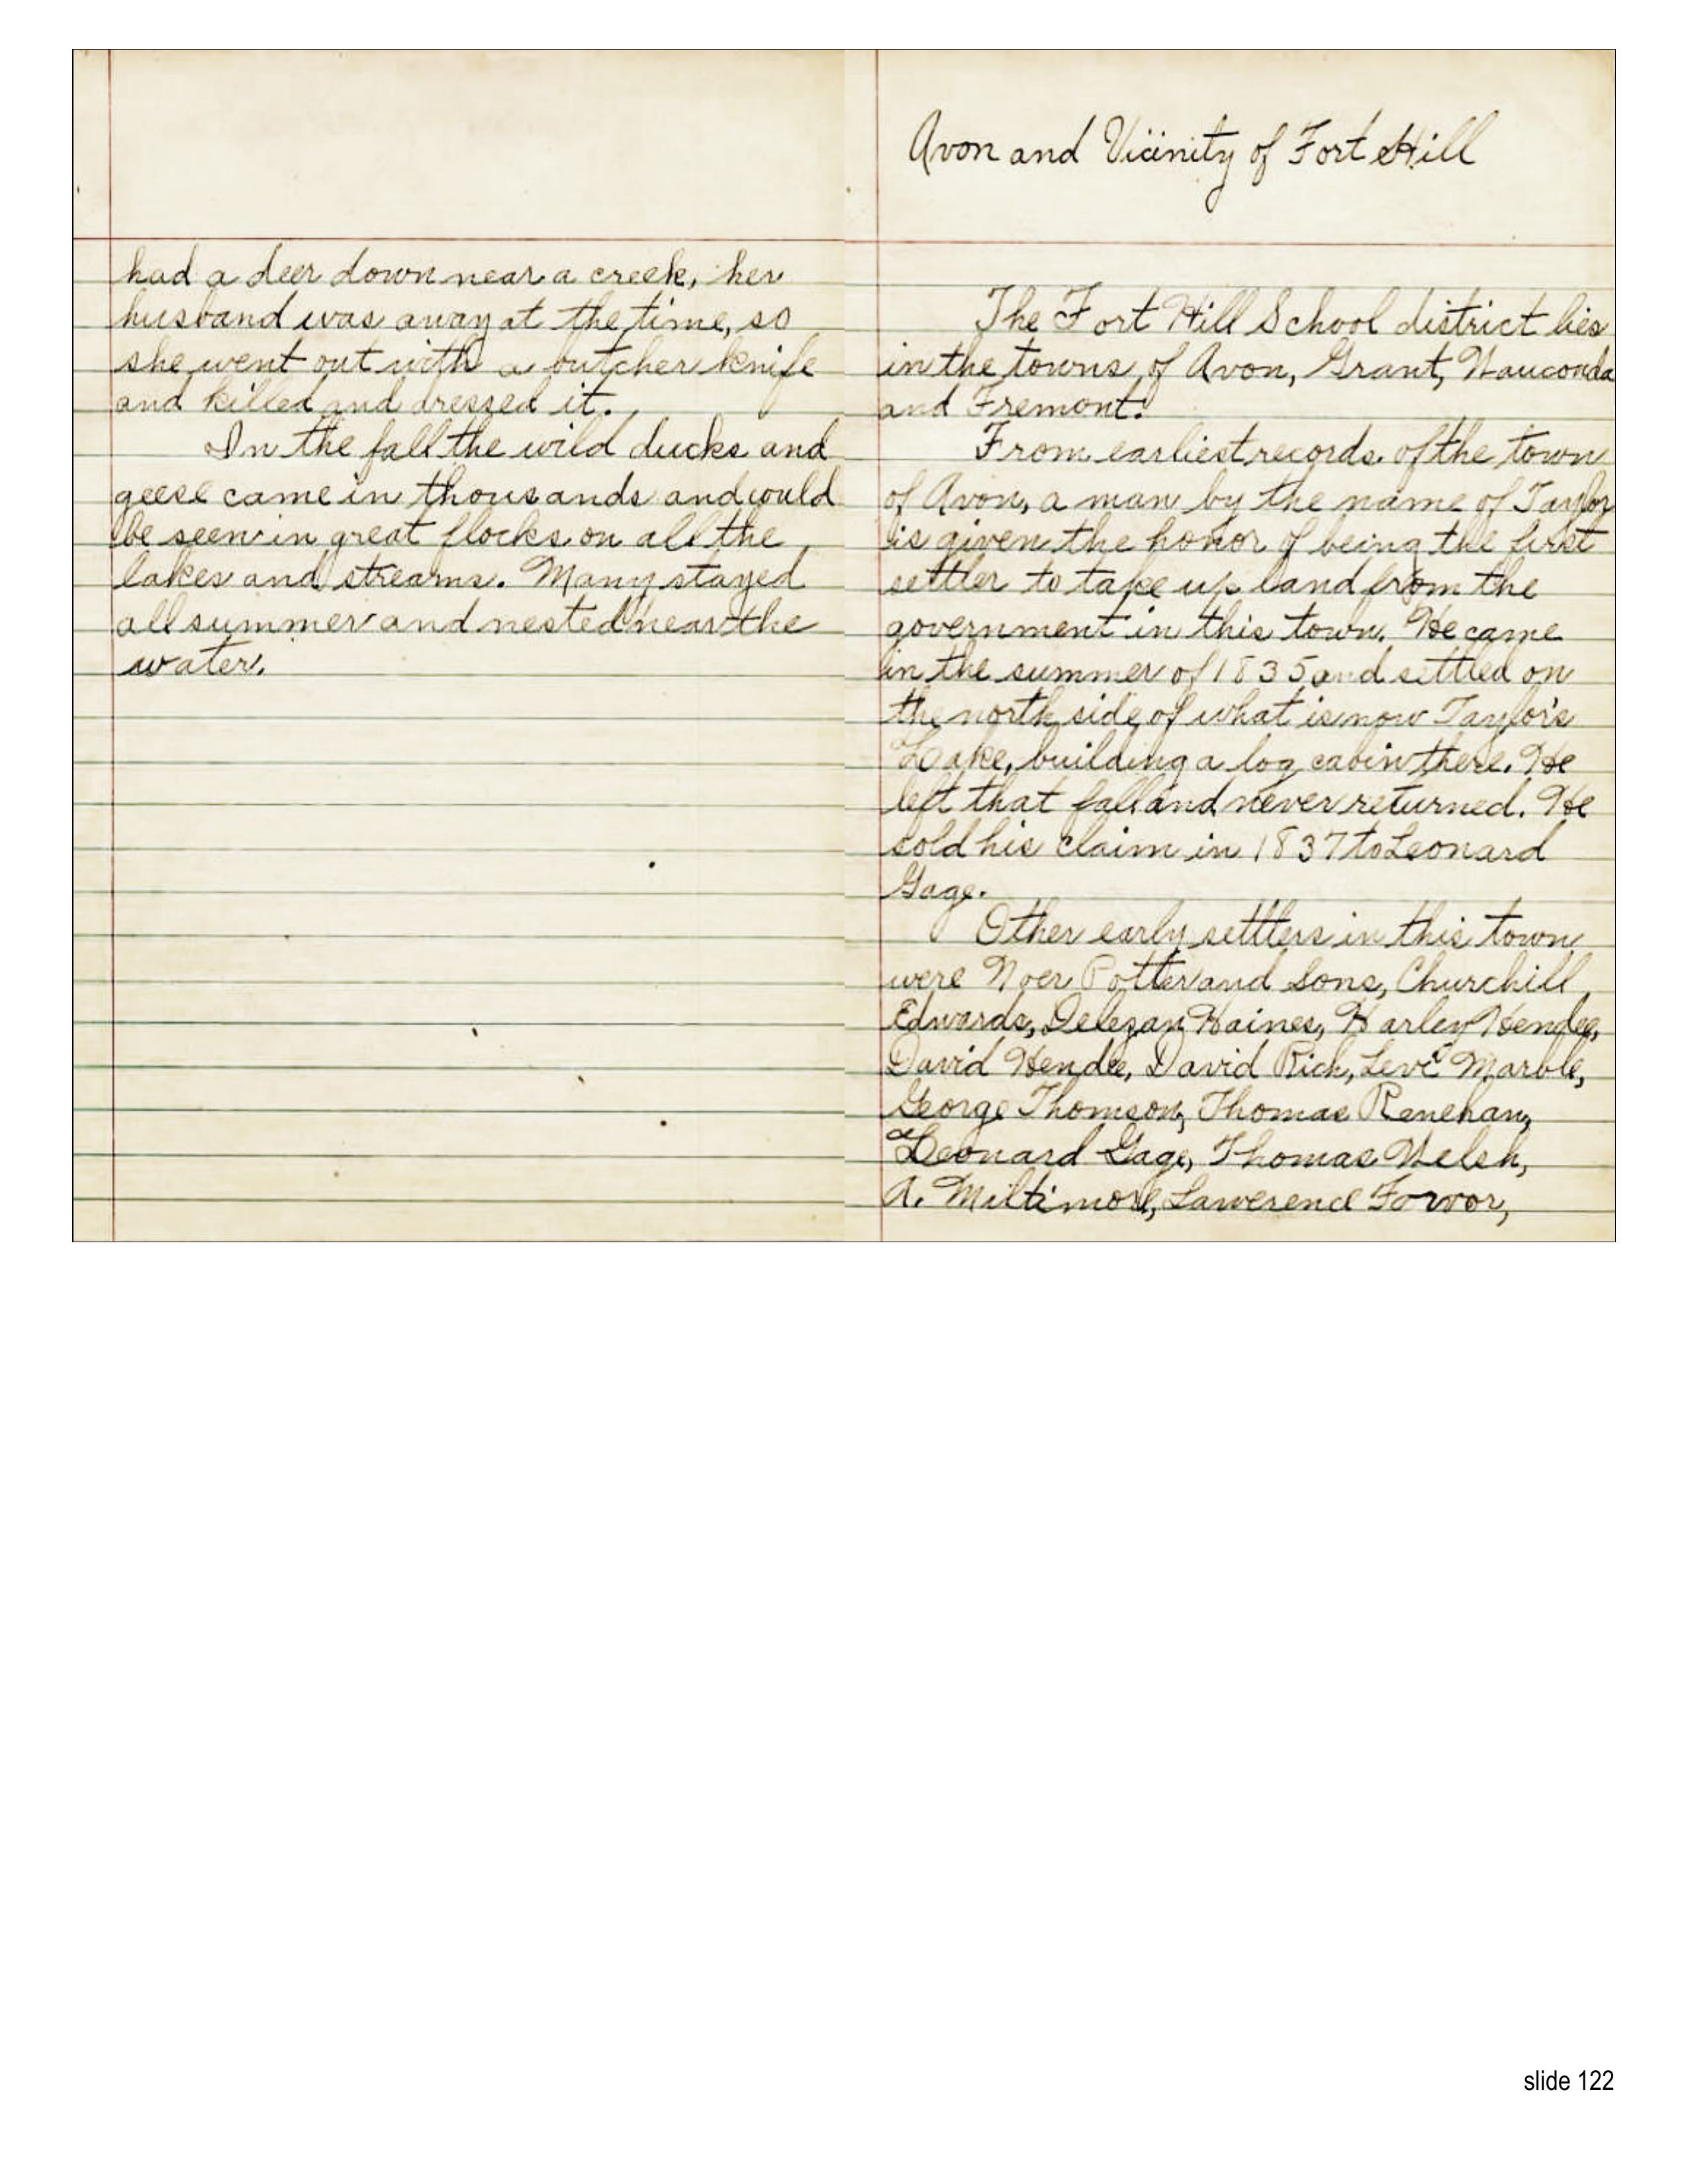 had a deer down near a creek, her
husband was away at the time, so
she went out with a butcher knife
and killed and dressed it.
In the fall the wild ducks and
geese came in thousands and could
be seen in great flocks on all the
lakes and streams. Many stayed
all summer and nested near the
water.
Avon and Vicinity of Fort Hill
The Fort Hill School district lies
in the towns of Avon, Grant, Wauconda
and Fremont.
From earliest records of the town
of Avon, a man by the name of Taylor
is given the honor of being the first
settler to take up land from the
government in this town. He came
in the summer of 1835 and settled on
the north side of what is now Taylor's
Lake, building a log cabin there. He
left that fall and never returned. He
sold his claim in 1837 to Leonard
Gage.
Other early settlers in this town
were Noer Potter and Sons, Churchill
Edwards, Delezan Haines, Harley Hendee,
David Hendee, David Rich, Levi Marble,
George Thomson, Thomas Renehan,
Leonard Gage, Thomas Welsh,
A. Miltimore, Lawerence Forvor,
slide 122